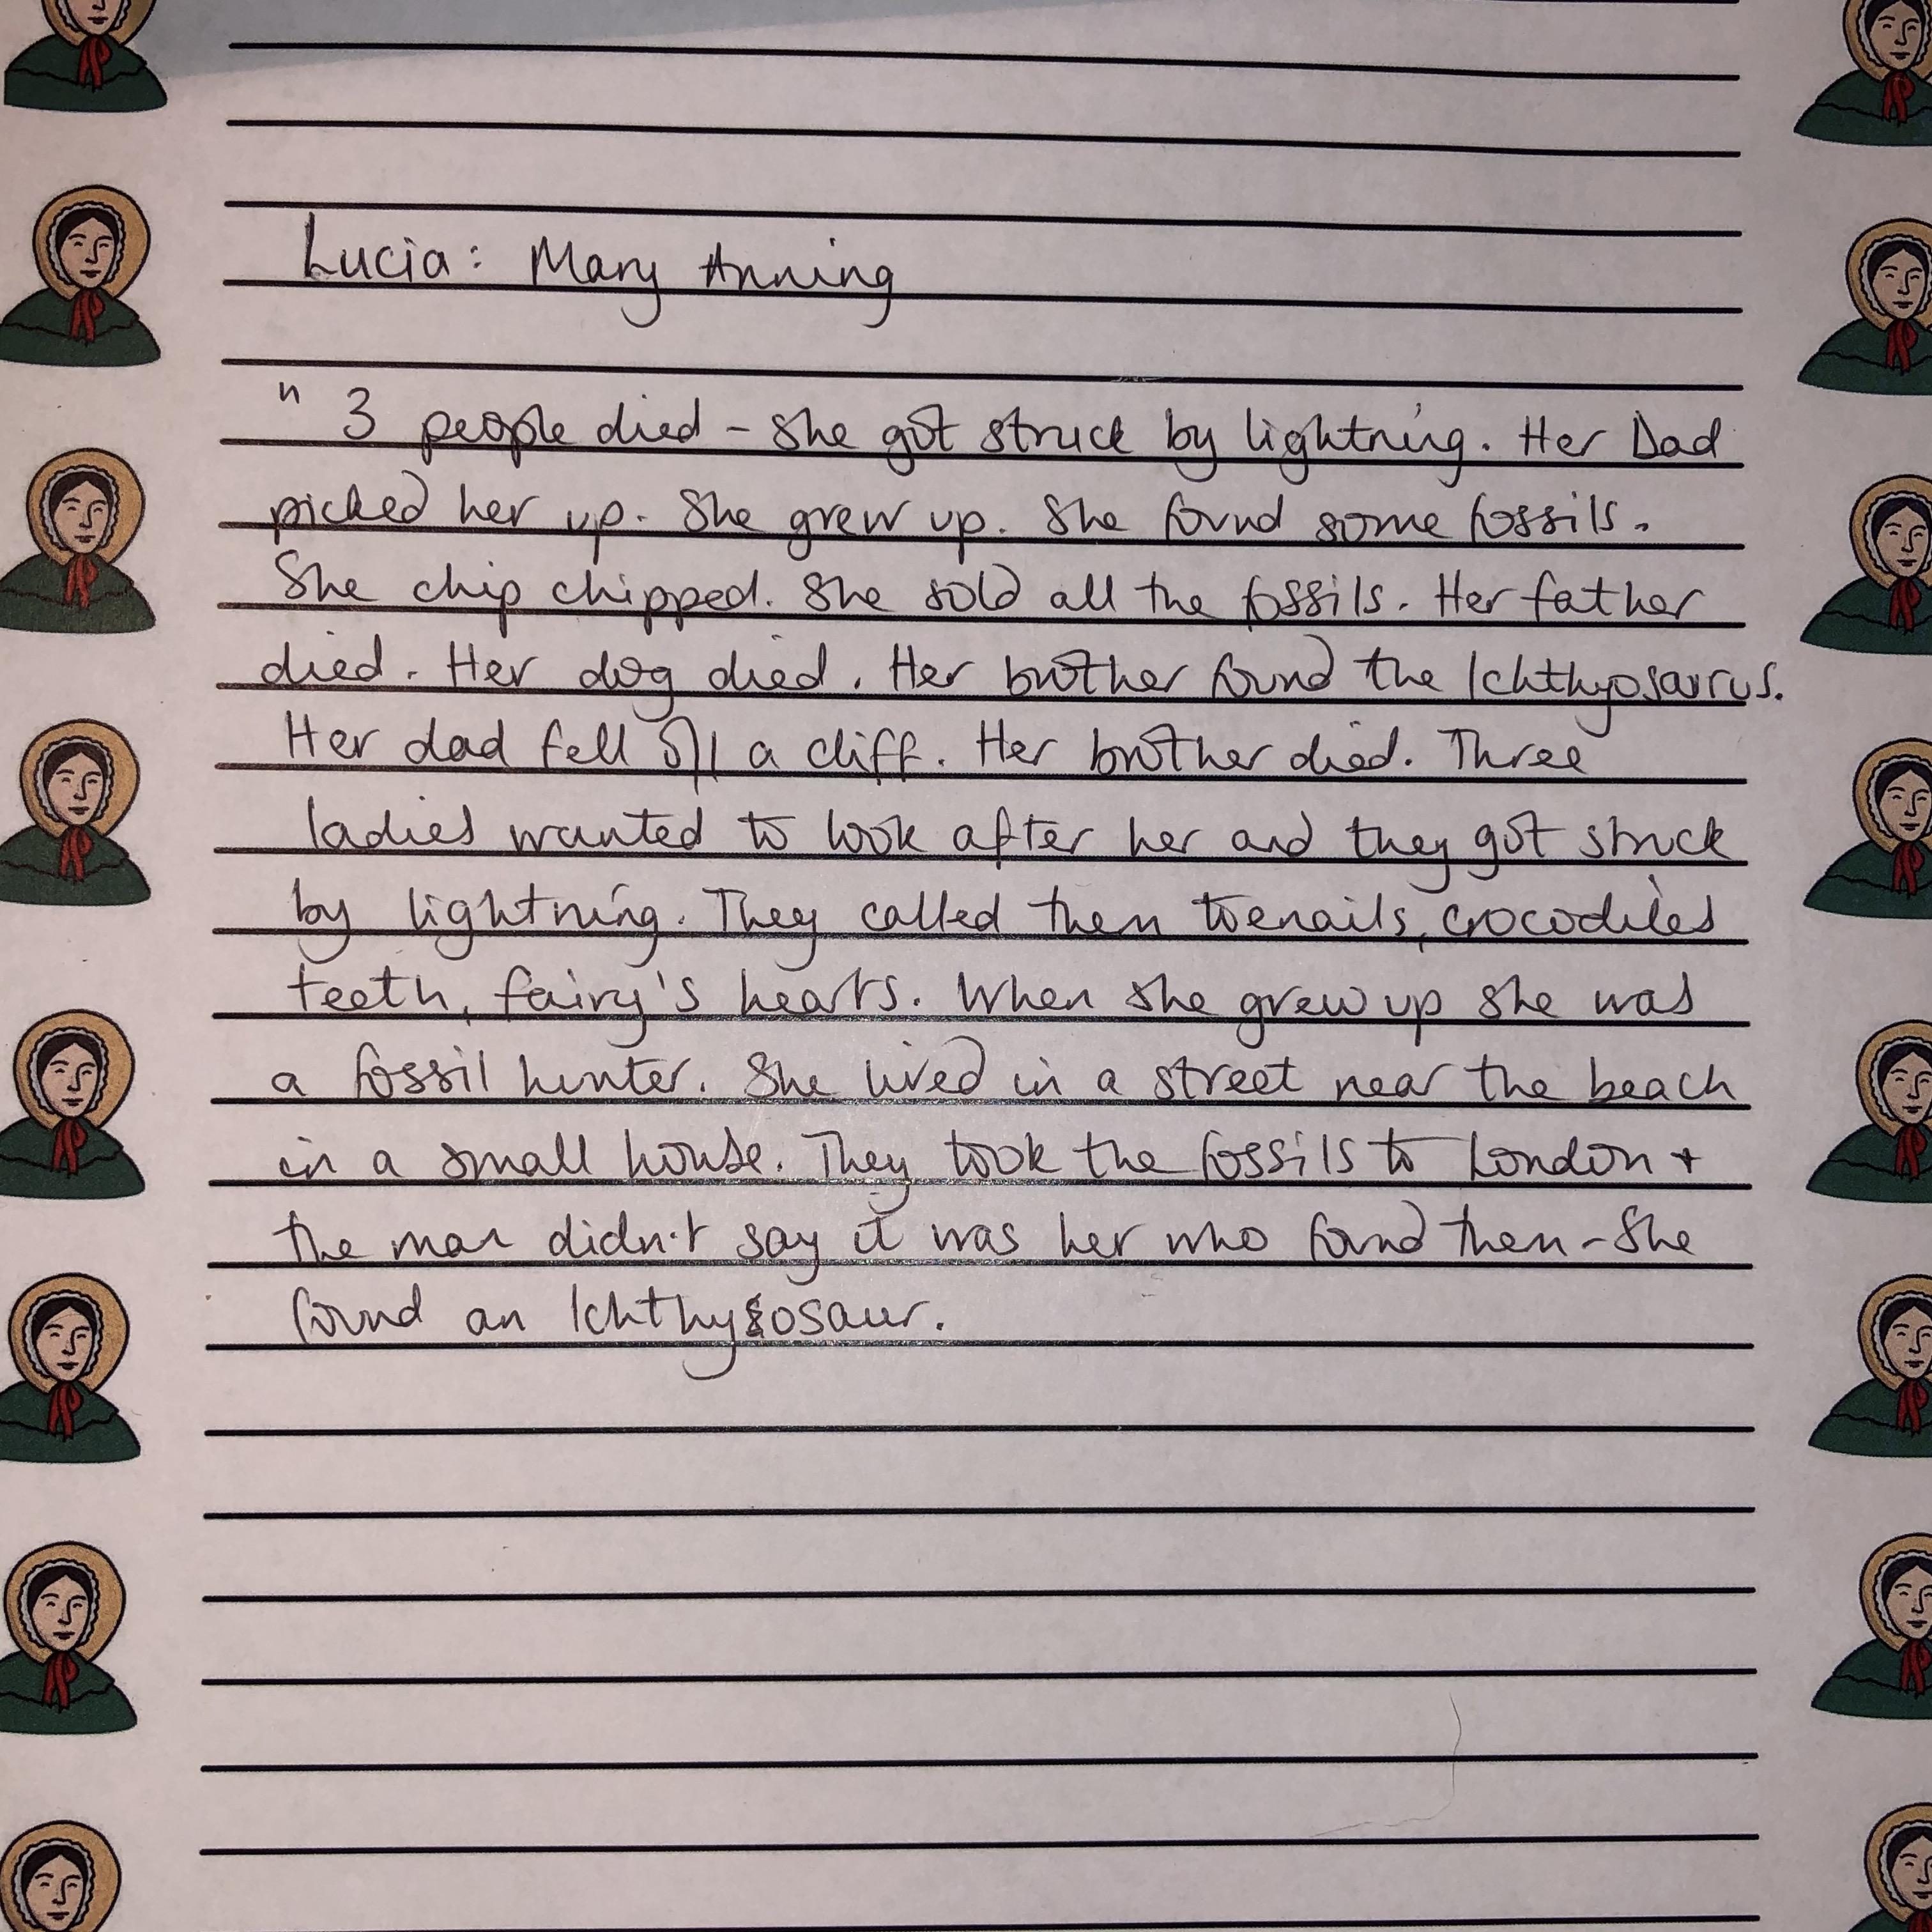 Lucia: Mary Anning
" 3 people died - She got struck by lightning. Her Dad
picked her up. She grew up. She found some fossils.
She chip chipped. She sold all the fossils. Her father
died. Her dog died. Her brother found the Ichthyosaurus.
Her dad fell off a cliff. Her brother died. Three
ladies wanted to look after her and they got struck
by lightning. They called them toenails, crocodiles
teeth, fairy's hearts. When she grew up she was
a fossil hunter. She lived in a street near the beach
in a small house. They took the fossils to London +
the man didn't say it was her who found them - She
found an Ichthyosaur.